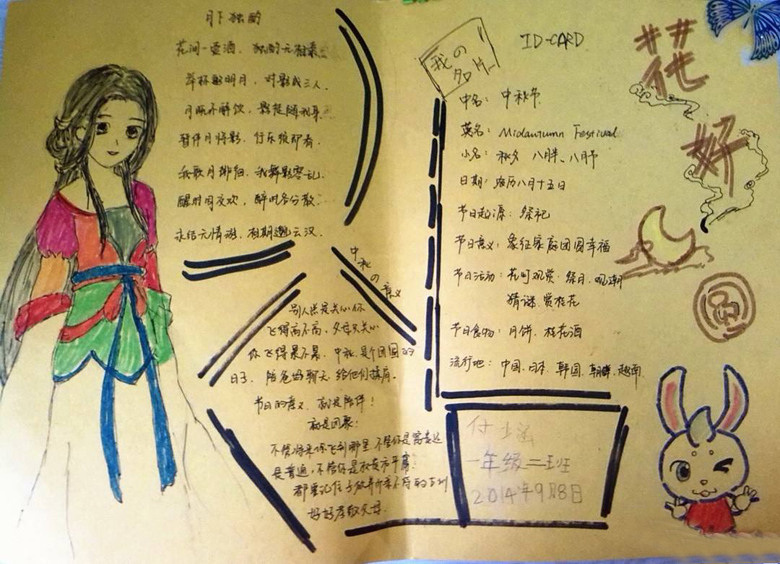 月下独酌
花间一壶酒，独酌无相亲。
举杯邀明月，对影成三人。
月既不解饮，影徒随我身。
暂伴月将影，行乐须即春。
我歌月徘徊，我舞影零乱。
醒时同交欢，醉时各分散。
永结无情游，相期邈云汉。
中秋の意义
别人总是关心你
飞得高不高，父母只关心
你飞得累不累，中秋是个团圆的
日子，陪爸妈聊天，给他们揉肩。
节日的意义，就是陪伴！
就是团聚！
不管将来你飞到哪里，不管你是富贵还
是普通，不管你是
都要记住
好好孝敬父母
我の名片
ID-CARD
中名：中秋节
英名：Midautumn Festival
小名：秋夕、八月半、八月节
日期：农历八月十五日
节日起源：祭祀
节日意义：象征家庭团圆幸福
节日活动：花町观赏、祭月、观潮
猜谜、赏桂花
节日食物：月饼、桂花酒
流行地：中国、日本、韩国、朝鲜、越南
付
一年级二班
2014年9月8日
花
好
月
圆